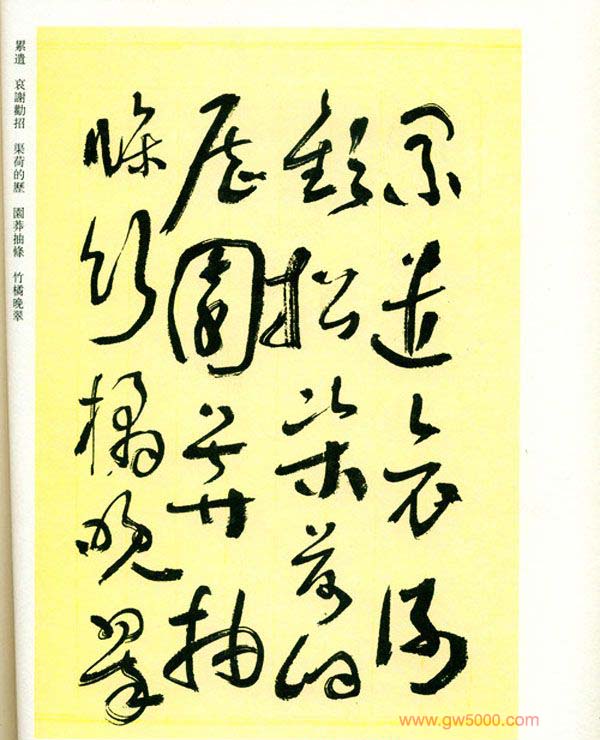 累遣哀謝
歡招渠荷的
歷園莽抽
條竹橘晚翠
累遣 哀謝勸招 渠荷的歷 園莽抽條 竹橘晚翠
www.gw5000.com